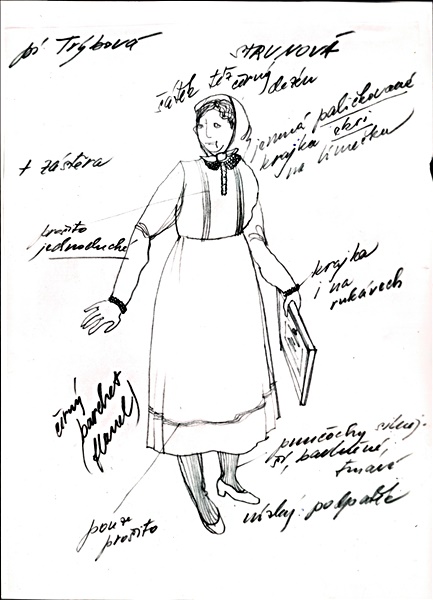 pí Trýbová
STRUNOVÁ
šátek též černý
dezén
jemná paličkovaná
krajka ekri
na límečku
+ zástěra
prošito
jednoduché
krajka
i na
rukávech
černý
barchet
(flanel)
punčochy silněj-
ší, bavlněné,
tmavé
nízký podpatek
pouze
prošito